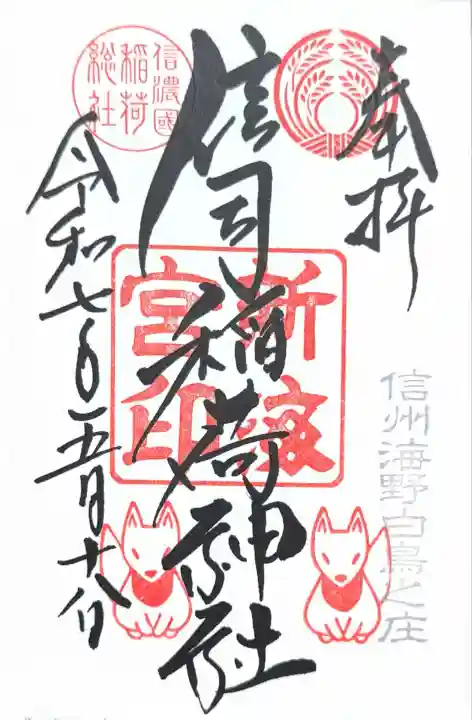 奉拝
信州海野白鳥之庄
信司稲荷神社
新海
宮印
信濃國
稲荷
総社
令和七年五月十八日